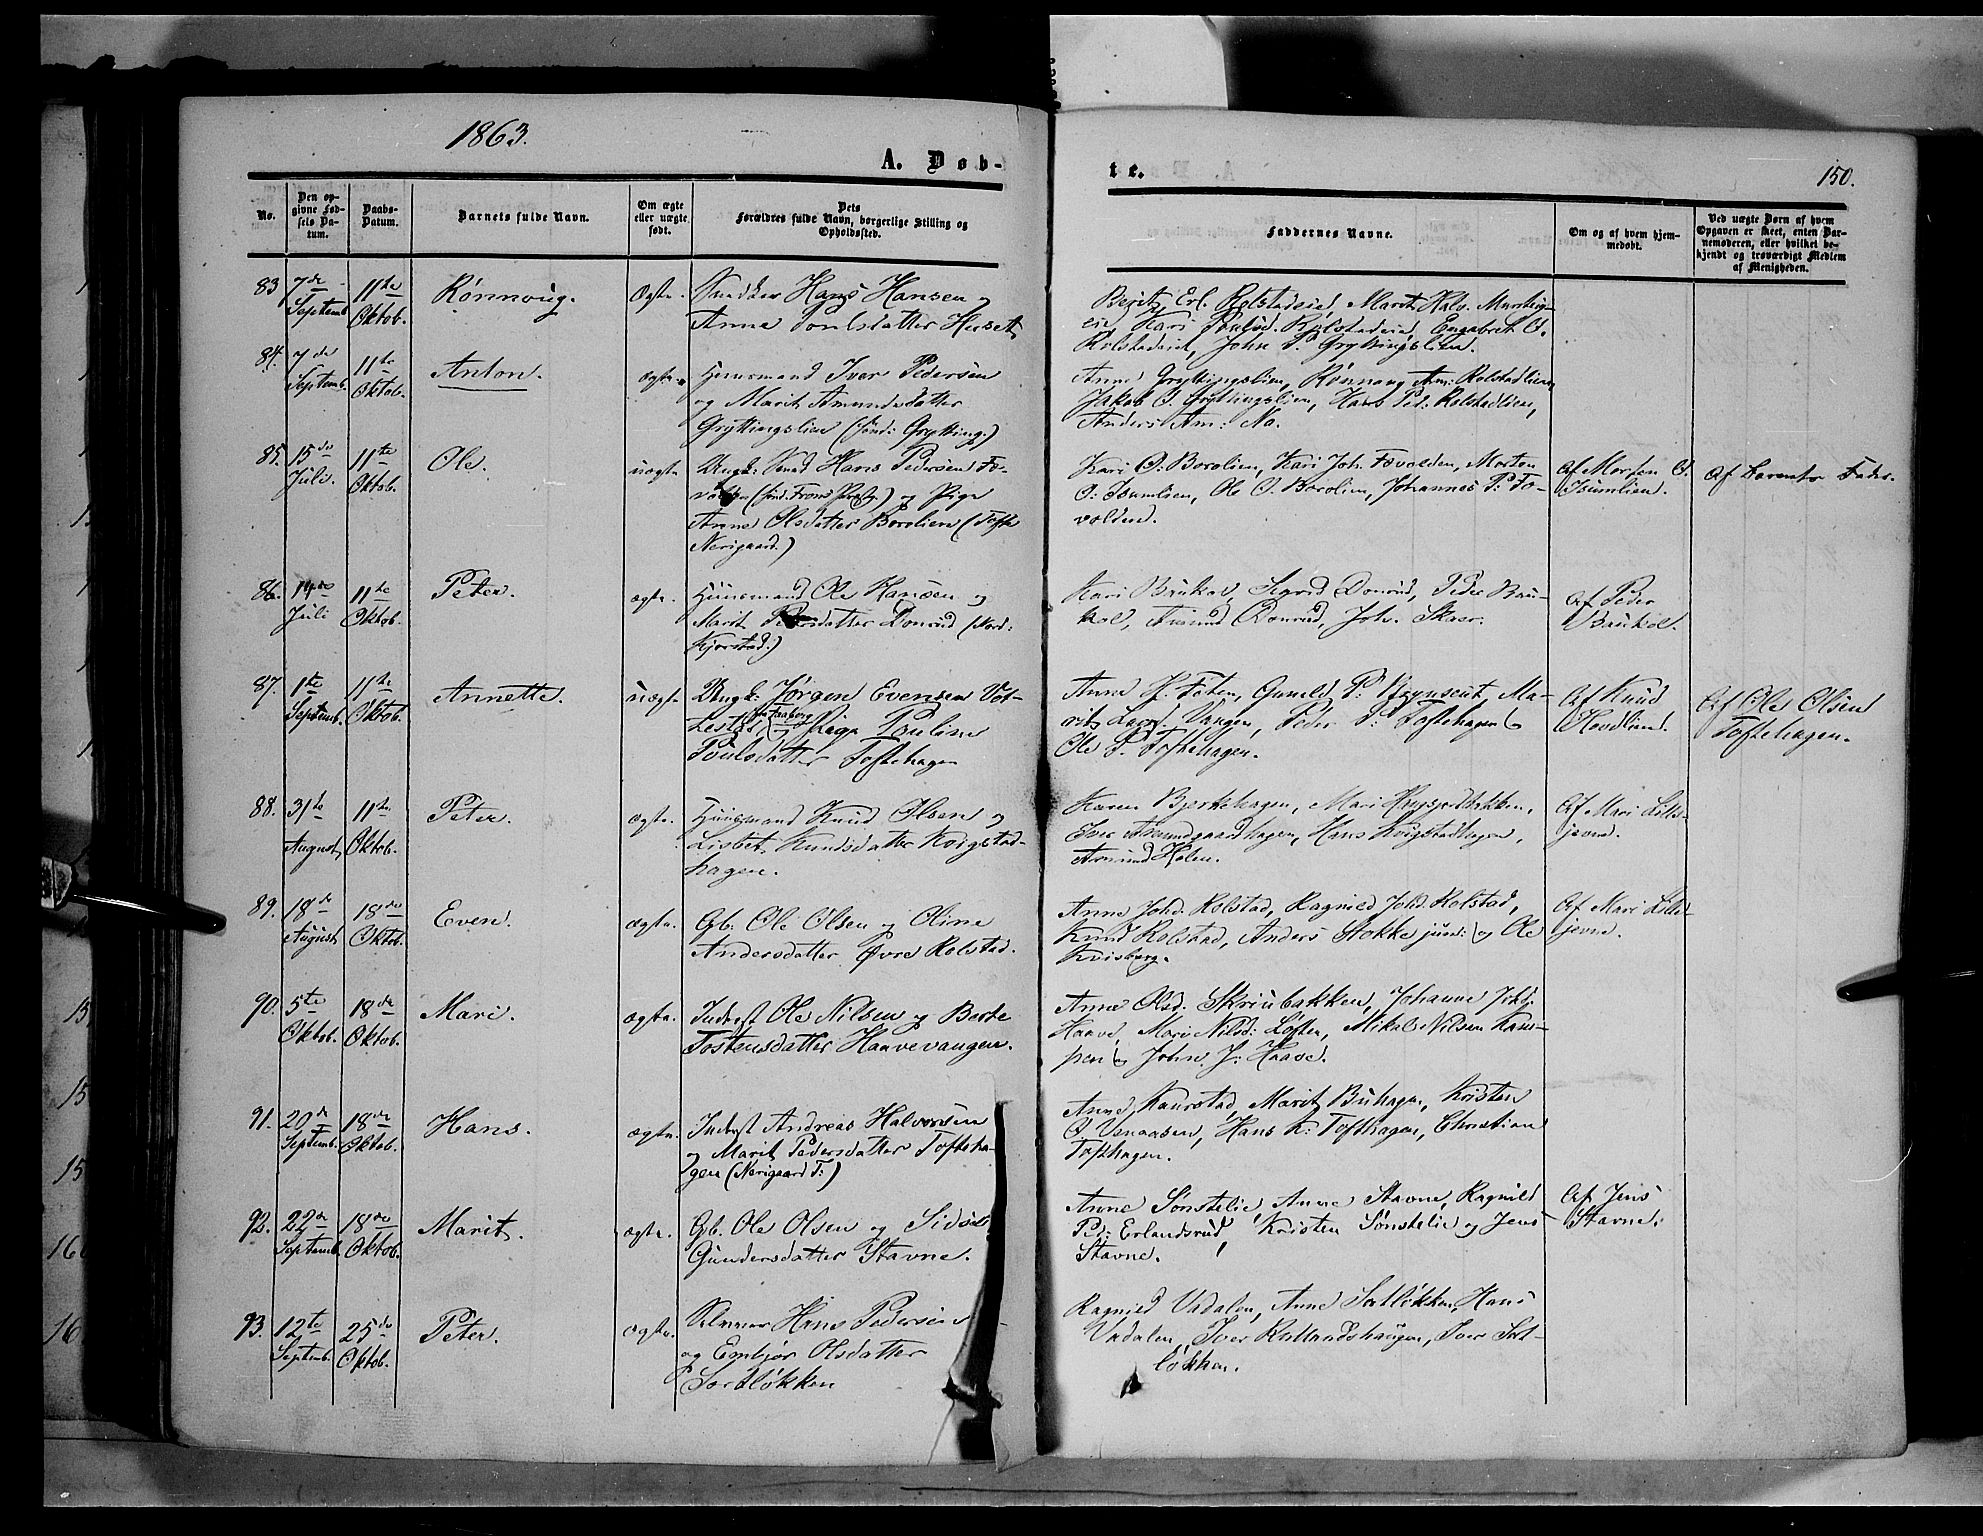 1863.
A. Døb-
te.
150.
No.
Den op-
givne Fød-
sels Da-
tum.
Daabs-
Datum.
Barnets fulde Navn.
Om ægte
eller uægte
født.
Dets
Forældres fulde Navn, borgerlige Stilling og
Opholdssted.
Faddernes Navne.
Om og af hvem hjem-
medøbt.
Ved uægte Børn af hvem
Opgaven er skeet, enten Bar-
nemoderen, eller hvilket be-
kjendt og troværdigt Medlem
af Menigheden.
83 7de Septemb. 11te Oktob. Rønnoug. Ægte. Snedker Hans Hansen og
Anne Poulsdatter
Berit Erl. Kolstadeie, Marit Halv.
eie, Kari Poulsd. Kolstadeie, Engebret O.
Kolstadeie, John P. Gryttingslien.
84. 7de Septemb. 11te Oktob. Anton. ægte. Huusmand Iver Pedersen
og Marit Amundsdatter
Gryttingslien (sønd: Grytting.)
Anne Gryttingslien, Rønnaug Am: Kolstadlien,
Jakob O. Gryttingslien, Hans Ped: Kolstadlien,
Anders Am: No.
85. 15de Juli. 11te Oktob. Ole. uægte. Ungk: Smed Hans Pedersen Fo-
volden (sønd. Frons Præstg.) og Pige
Anne Olsdatter Borolien (Tofte
Nerigaard.)
Kari O. Borolien, Kari Joh. Fovolden, Morten
O. Isumlien, Ole O. Borolien, Johannes P: Fo-
volden.
Af Morten O.
Isumlien.
Af Barnets Fader.
86. 14de Juli 11te Oktob. Peter. ægte. Huusmand Ole Hansen og
Marit Pedersdatter Donrud (Nord:
Kjorstad.)
Kari Baukol, Sigrid Donrud, Peder Bau-
kol, Amund Donrud, Joh. Skaer.
Af Peder
Baukol.
87. 1te Septemb. 11te Oktob. Annette. uægte. Ungk: Jørgen Evensen
fra Faaberg og Pige Pauline
Poulsdatter Toftehagen
Anne H. Foten, Gunild P. Ma-
rit Vangen, Peder P: Toftehagen &
Ole P. Toftehagen.
Af Knud
Hovdlund.
Af Ole Olsen
Toftehagen.
88. 31te August 11te Oktob. Peter. ægte. Huusmand Knud Olsen og
Lisbet Knudsdatter Kvigstad-
hagen.
Karen Bjerkehagen, Mari
Iver Amundgaardhagen, Hans Kvigstadhagen,
Amund Holen.
Af Mari Lille-
jevne.
89. 18de August 18de Oktob. Even. ægte. Gb. Ole Olsen og Oline
Andersdatter Øvre Kolstad.
Anne Johd. Kolstad, Ragnild Johd. Kolstad,
Knud Kolstad, Anders Stokke jun: og Ole
Kvisberg.
Af Mari Lille-
jevne.
90. 5te Oktob. 18de Oktob. Mari. ægte. Inderst Ole Nilsen og Berte
Tostensdatter Haavevangen.
Anne Olsd. Skriubakken, Johanne Johd.
Haave, Mari Nilsd: Løften, Mikal Nilsen Kam-
pen & John J: Haave.
91. 20de Septemb. 18de Oktob. Hans. ægte. Inderst Andreas Halvorsen
og Marit Pedersdatter Tofteha-
gen (Nerigaard T:)
Anne Kaurstad, Marit Buhagen, Kristen
O Venaasen, Hans K: Tofthagen, Christian
Tofthagen.
92. 22de Septemb. 18de Oktob. Marit. ægte. Gb. Ole Olsen og Sidsel
Gundersdatter Stavne.
Anne Sønstelie, Anne Stavne, Ragnild
Ped: Erlandsrud, Kristen Sønstelie og Jens
Stavne.
Af Jens
Stavne.
93. 12te Septemb. 25de Oktob. Peter. ægte. Selveier Hans Pedersen
og Embjør Olsdatter
Sortløkken
Ragnild Vadalen, Anne Sortløkken, Hans
Vadalen, Iver Rullandshaugen, Iver Sort-
løkken.